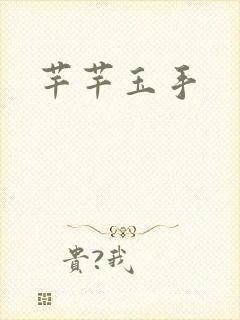 芊芊玉手
貴?我